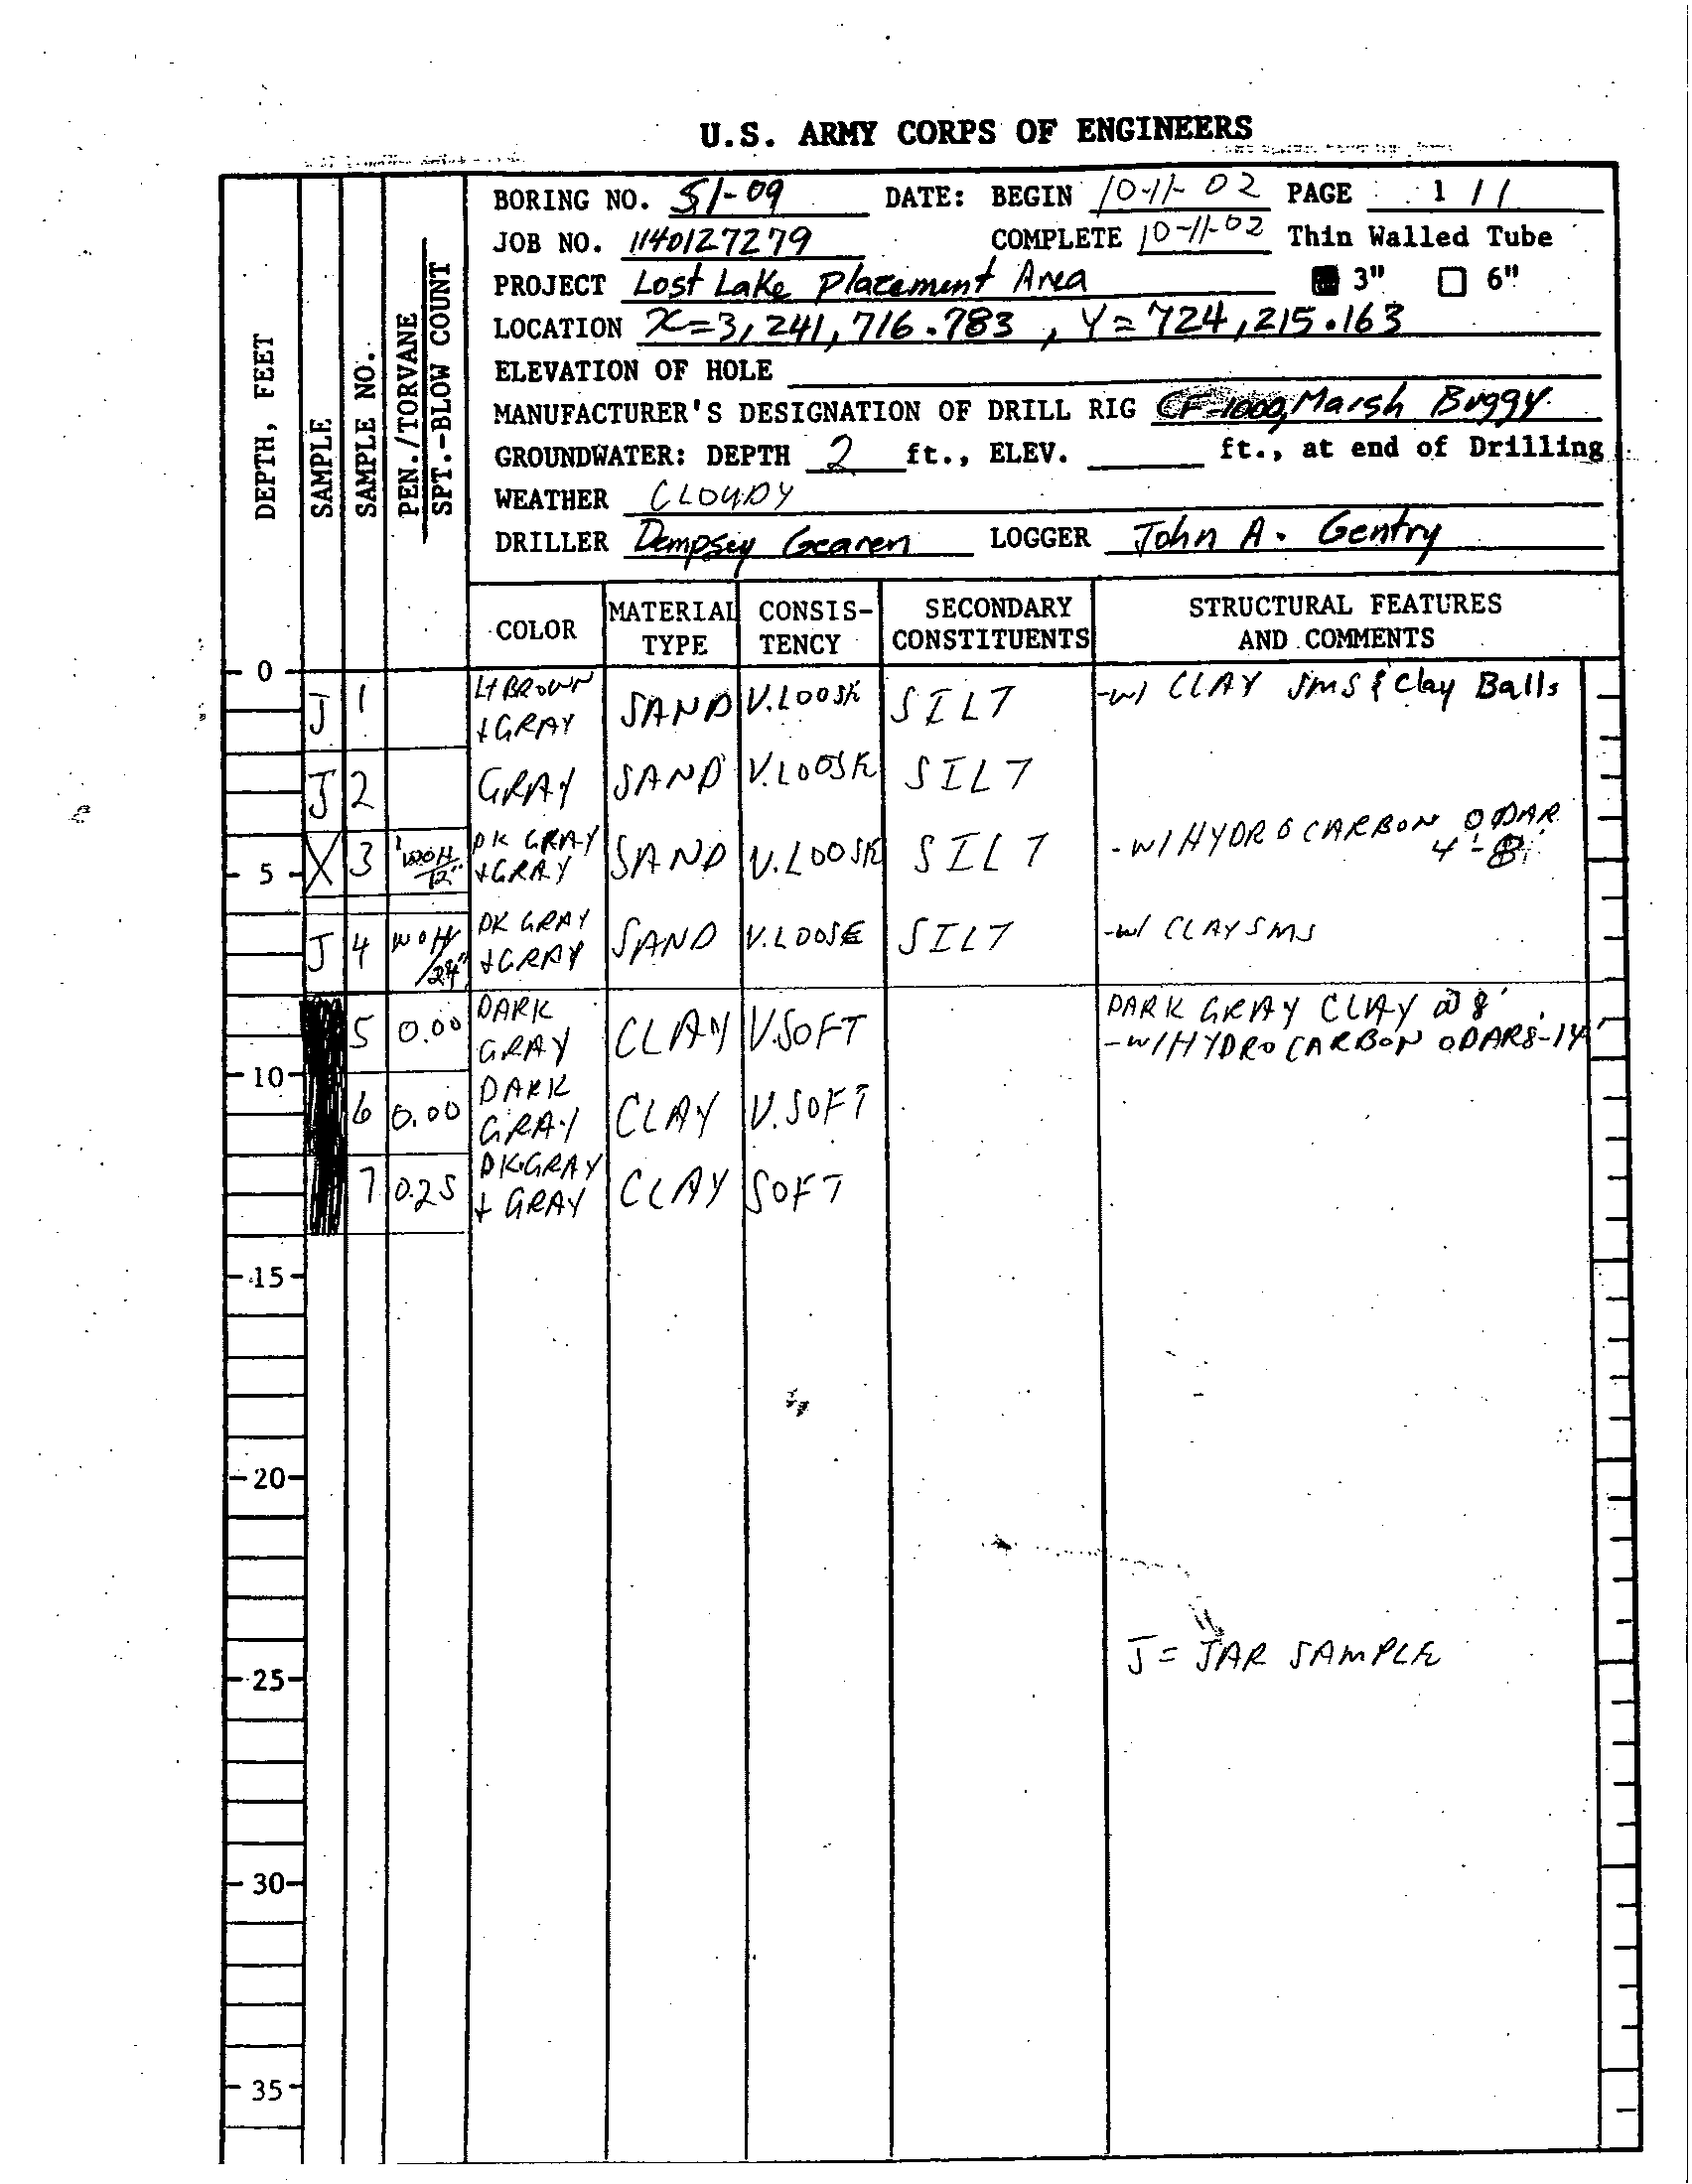 U.S. ARMY CORPS OF ENGINEERS
BORING NO. S1-09 DATE: BEGIN 10-11-02 PAGE 1 / 1
JOB NO. 1140127279 COMPLETE 10-11-02 Thin Walled Tube
PROJECT Lost Lake Placement Area 3" 6"
LOCATION X=3,241,716.783, Y=724,215.163
ELEVATION OF HOLE
MANUFACTURER'S DESIGNATION OF DRILL RIG Marsh Buggy
GROUNDWATER: DEPTH 2 ft., ELEV. ft., at end of Drilling
WEATHER CLOUDY
DRILLER Dempsey Gearen LOGGER John A. Gentry
DEPTH, FEET
SAMPLE
SAMPLE NO.
PEN./TORVANE
SPT.-BLOW COUNT
COLOR MATERIAL TYPE CONSIS-TENCY SECONDARY CONSTITUENTS STRUCTURAL FEATURES AND COMMENTS
0
J 1 LT BROWN + GRAY SAND V.LOOSE SILT -W/ CLAY SMS & Clay Balls
J 2 GRAY SAND V.LOOSE SILT
5 X 3 WOH/12" DK GRAY + GRAY SAND V.LOOSE SILT -W/HYDROCARBON ODAR 4'-8'
J 4 WOH/24" DK GRAY + GRAY SAND V.LOOSE SILT -W/ CLAY SMS
5 0.00 DARK GRAY CLAY V.SOFT DARK GRAY CLAY @ 8'
-W/HYDROCARBON ODAR 8-14'
10
6 0.00 DARK GRAY CLAY V.SOFT
7 0.25 DK.GRAY + GRAY CLAY SOFT
15
20
25 J = JAR SAMPLE
30
35